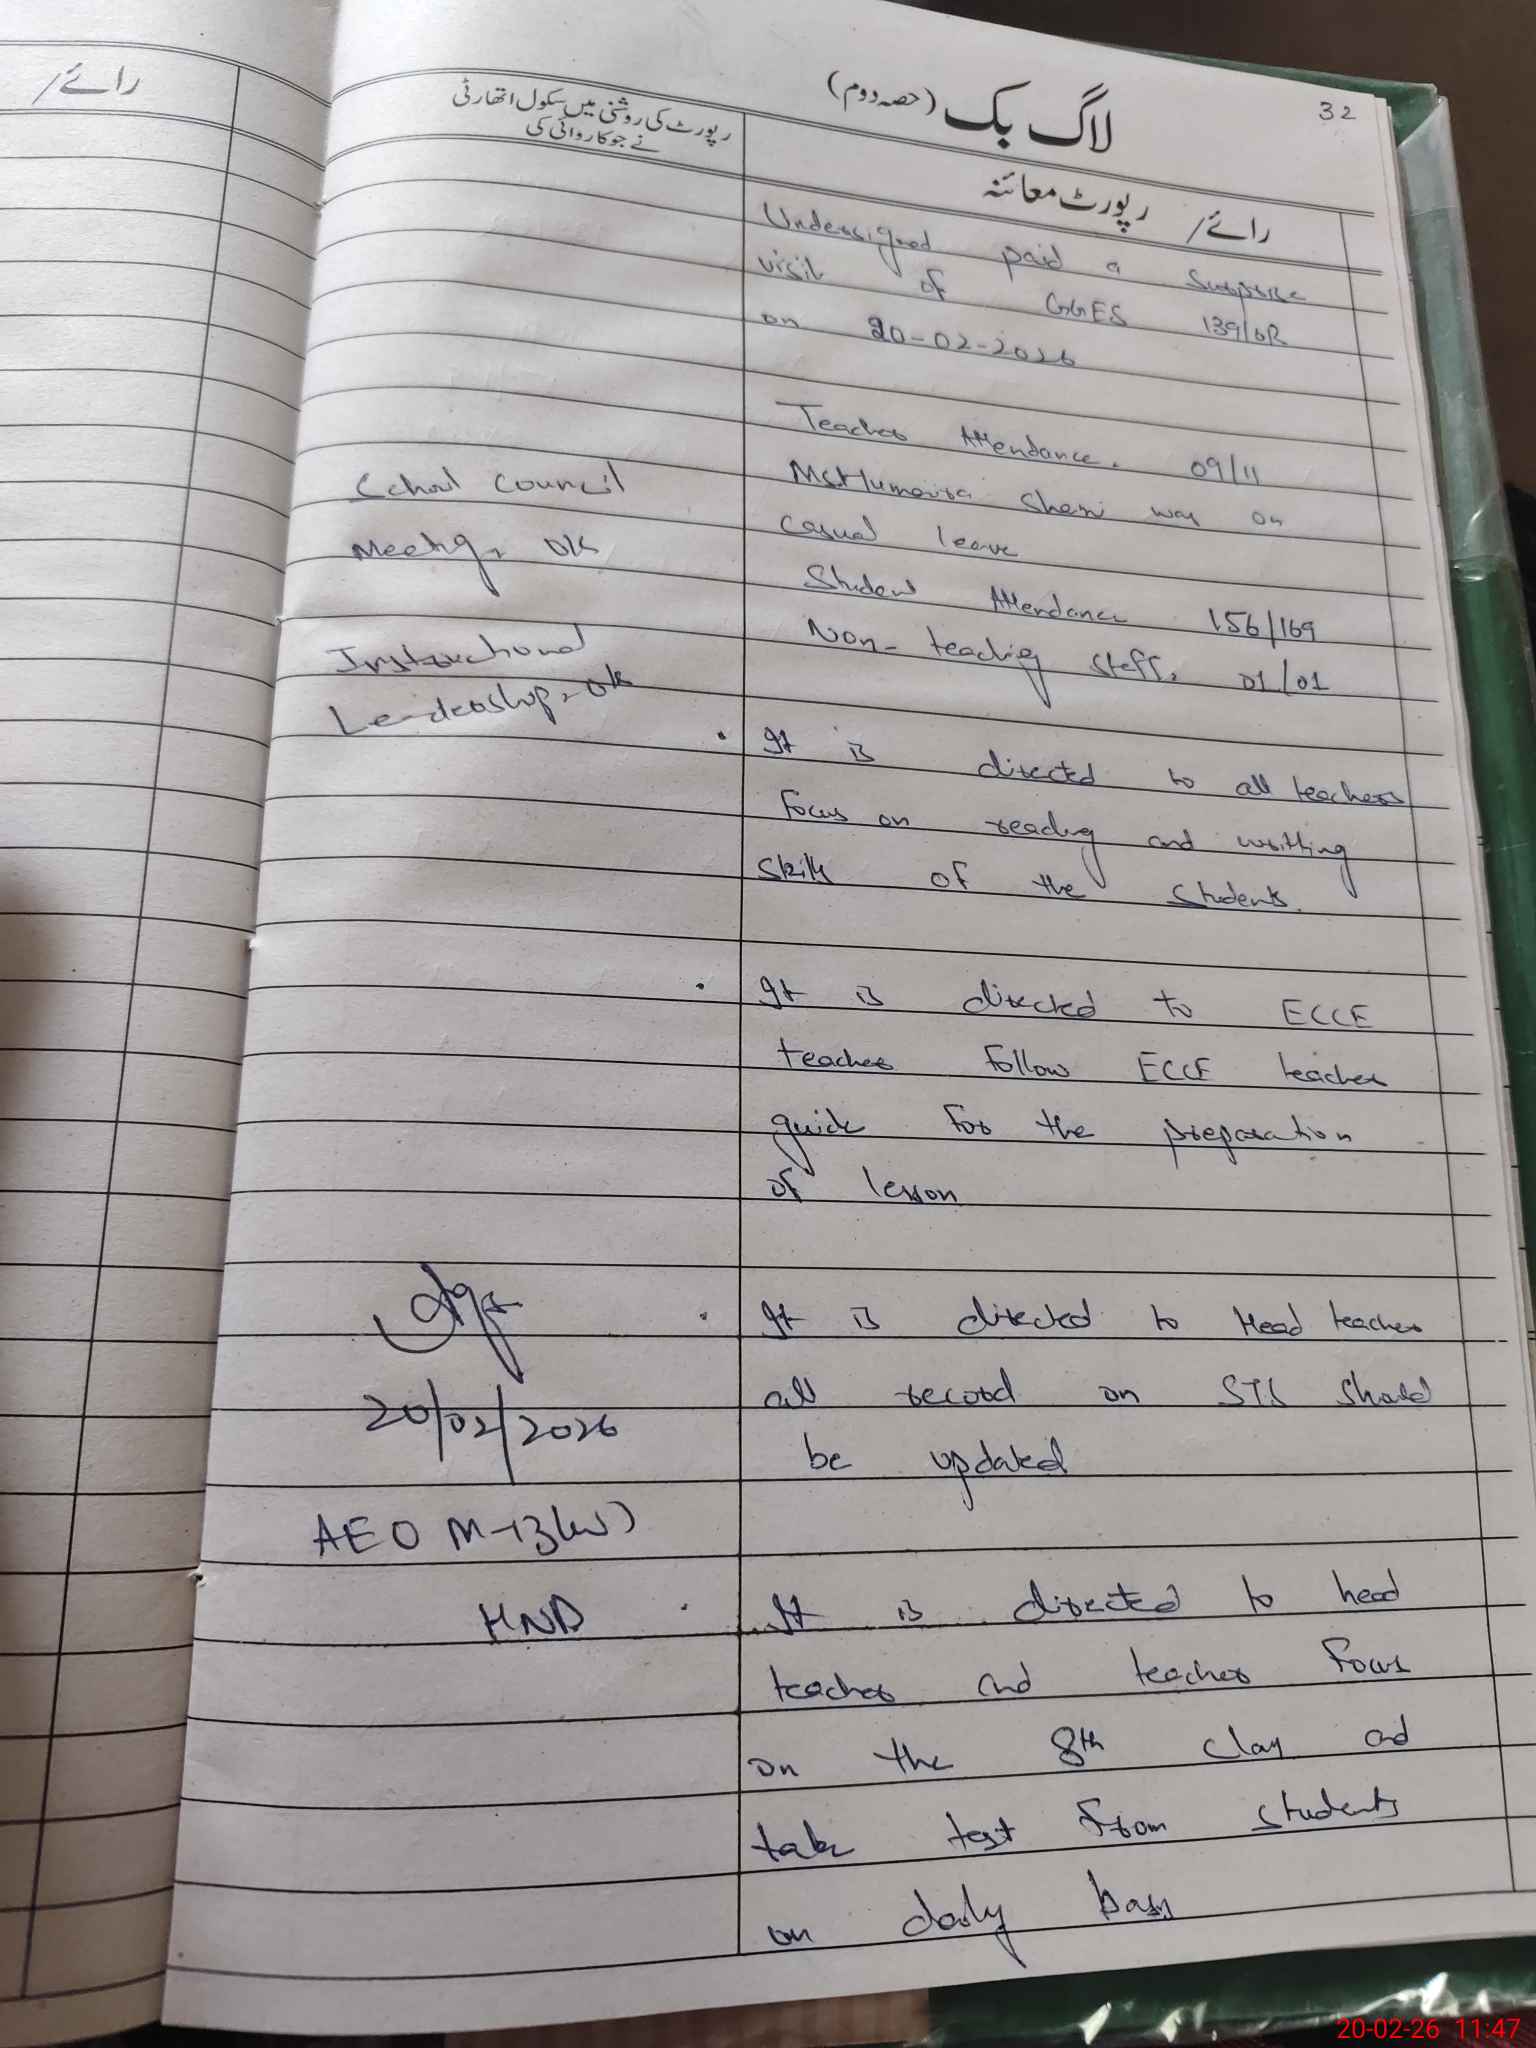 32
لاگ بک (حصہ دوم)
رائے/ رپورٹ معائنہ
رپورٹ کی روشنی میں سکول اتھارٹی
نے جو کاروائی کی
رائے/
Undersigned paid a surprise
visit of GGES 139/6R
on 20-02-2026
Teacher Attendance. 09/11
Ms Humaira was on
casual leave
Student Attendance 156/169
Non-teaching staff, 01/01
. It is directed to all teachers
focus on reading and writting
skills of the students.
. It is directed to ECCE
teacher follow ECCE teacher
guide for the preparation
of lesson
. It is directed to Head teacher
all record on STS should
be updated
. It is directed to head
teacher and teacher focus
on the 8th class and
take test from students
on daily basis
School council
Meeting, ok
Instructional
Leadership, ok
20/02/2026
AEO M-13(W)
HND
20-02-26 11:47